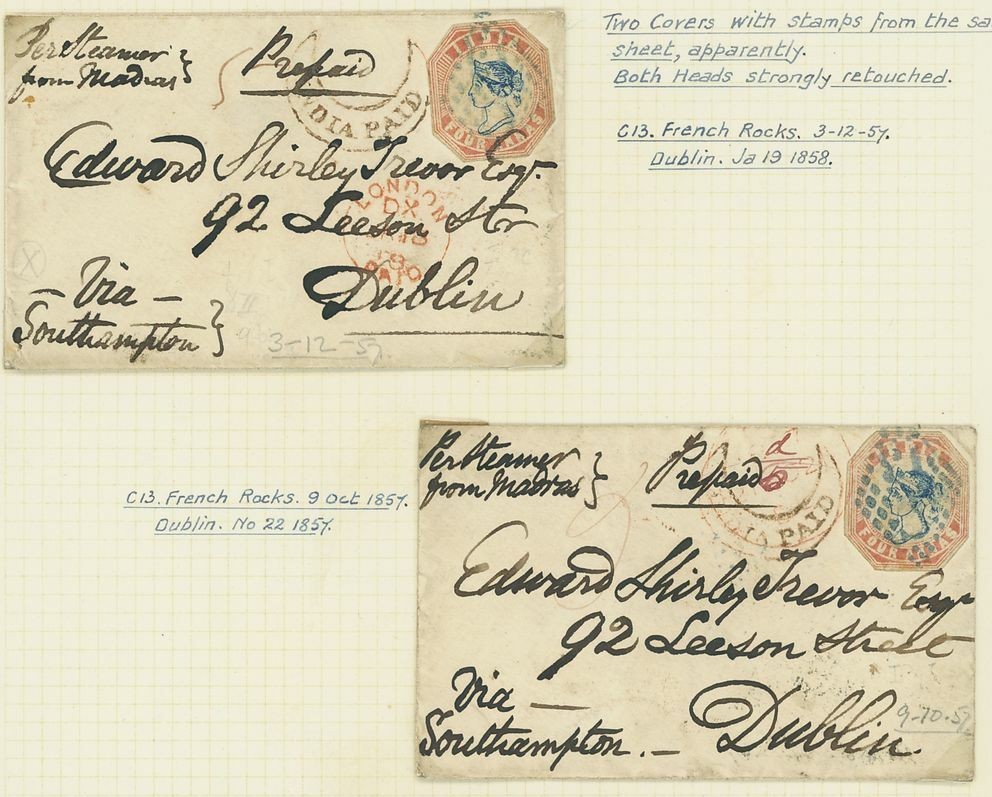 Two Covers with stamps from the sa
sheet, apparently.
Both Heads strongly retouched.
C13. French Rocks. 3-12-57.
Dublin. Ja 19 1858.
Per Steamer
from Madras }
Prepaid
INDIA PAID
INDIA
FOUR ANNAS
Edward Shirley Trevor Esqr.
92 Leeson Str
Dublin
LONDON
DX
18
PAID
X
— Via —
Southampton }
3-12-57.
C13. French Rocks. 9 Oct 1857.
Dublin. No 22 1857.
Per Steamer
from Madras }
Prepaid
d
INDIA PAID
FOUR ANNAS
Edward Shirley Trevor Esqr
92 Leeson Street
Dublin
Via —
Southampton. —
9-10-57